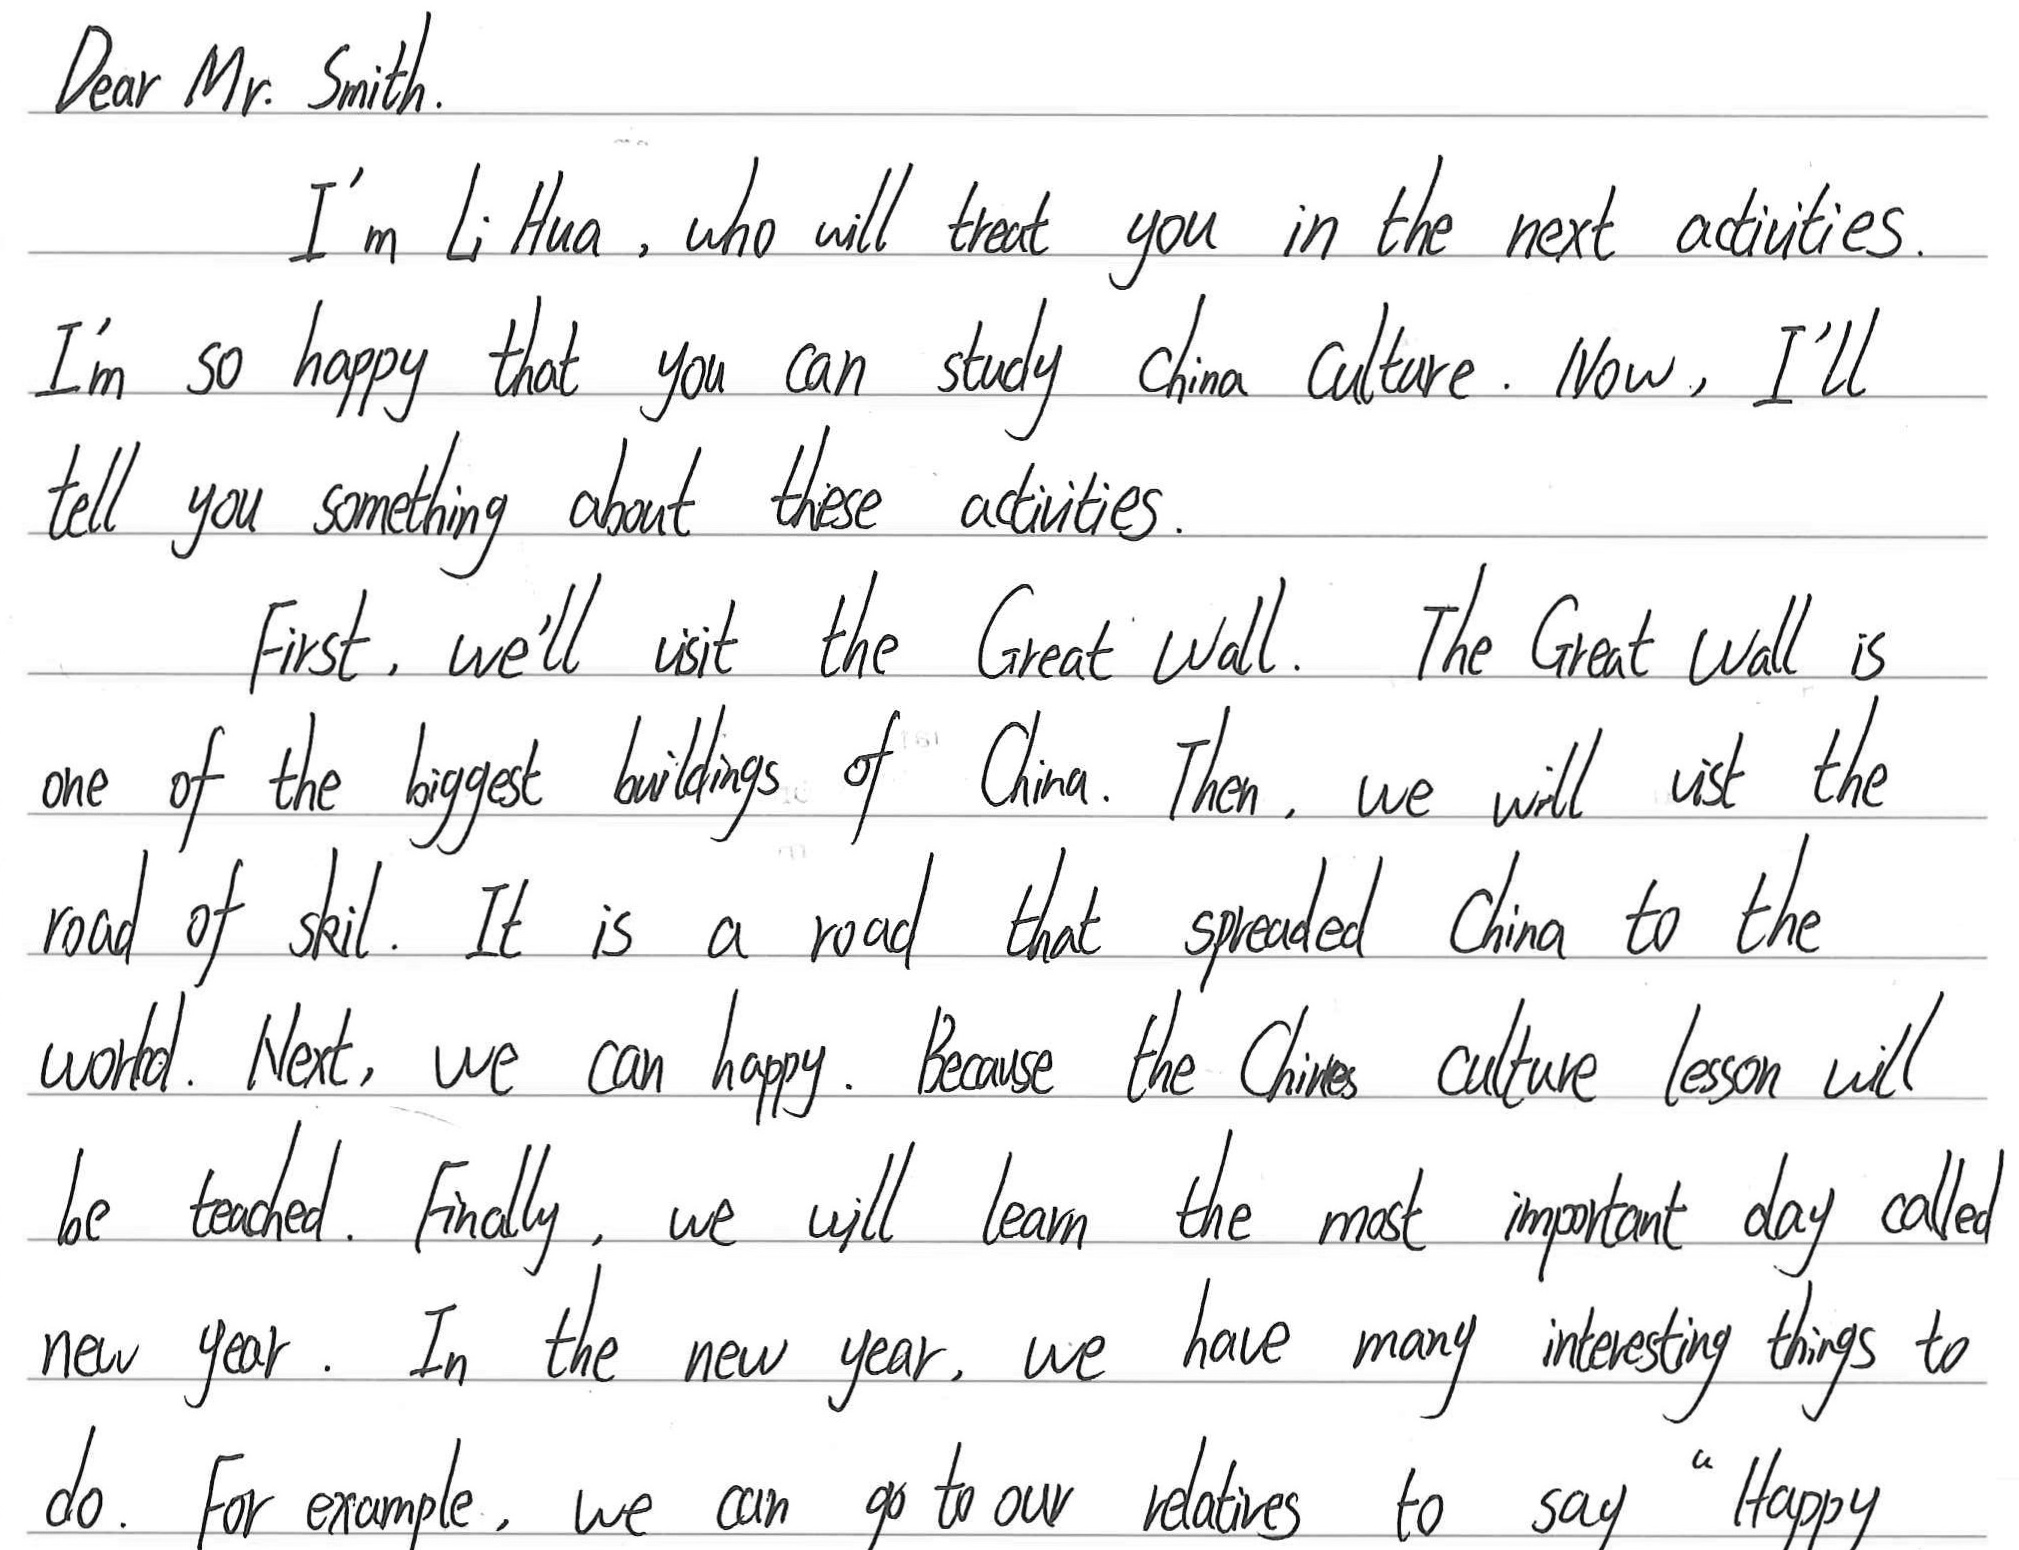 Dear Mr. Smith.
I'm Li Hua, who will treat you in the next activities.
I'm so happy that you can study China Culture. Now, I'll
tell you something about these activities.
First, we'll visit the Great Wall. The Great Wall is
one of the biggest buildings of China. Then, we will vist the
road of skil. It is a road that spreaded China to the
world. Next, we can happy. Because the Chines culture lesson will
be teached. Finally, we will learn the most important day called
new year. In the new year, we have many interesting things to
do. For example, we can go to our relatives to say "Happy